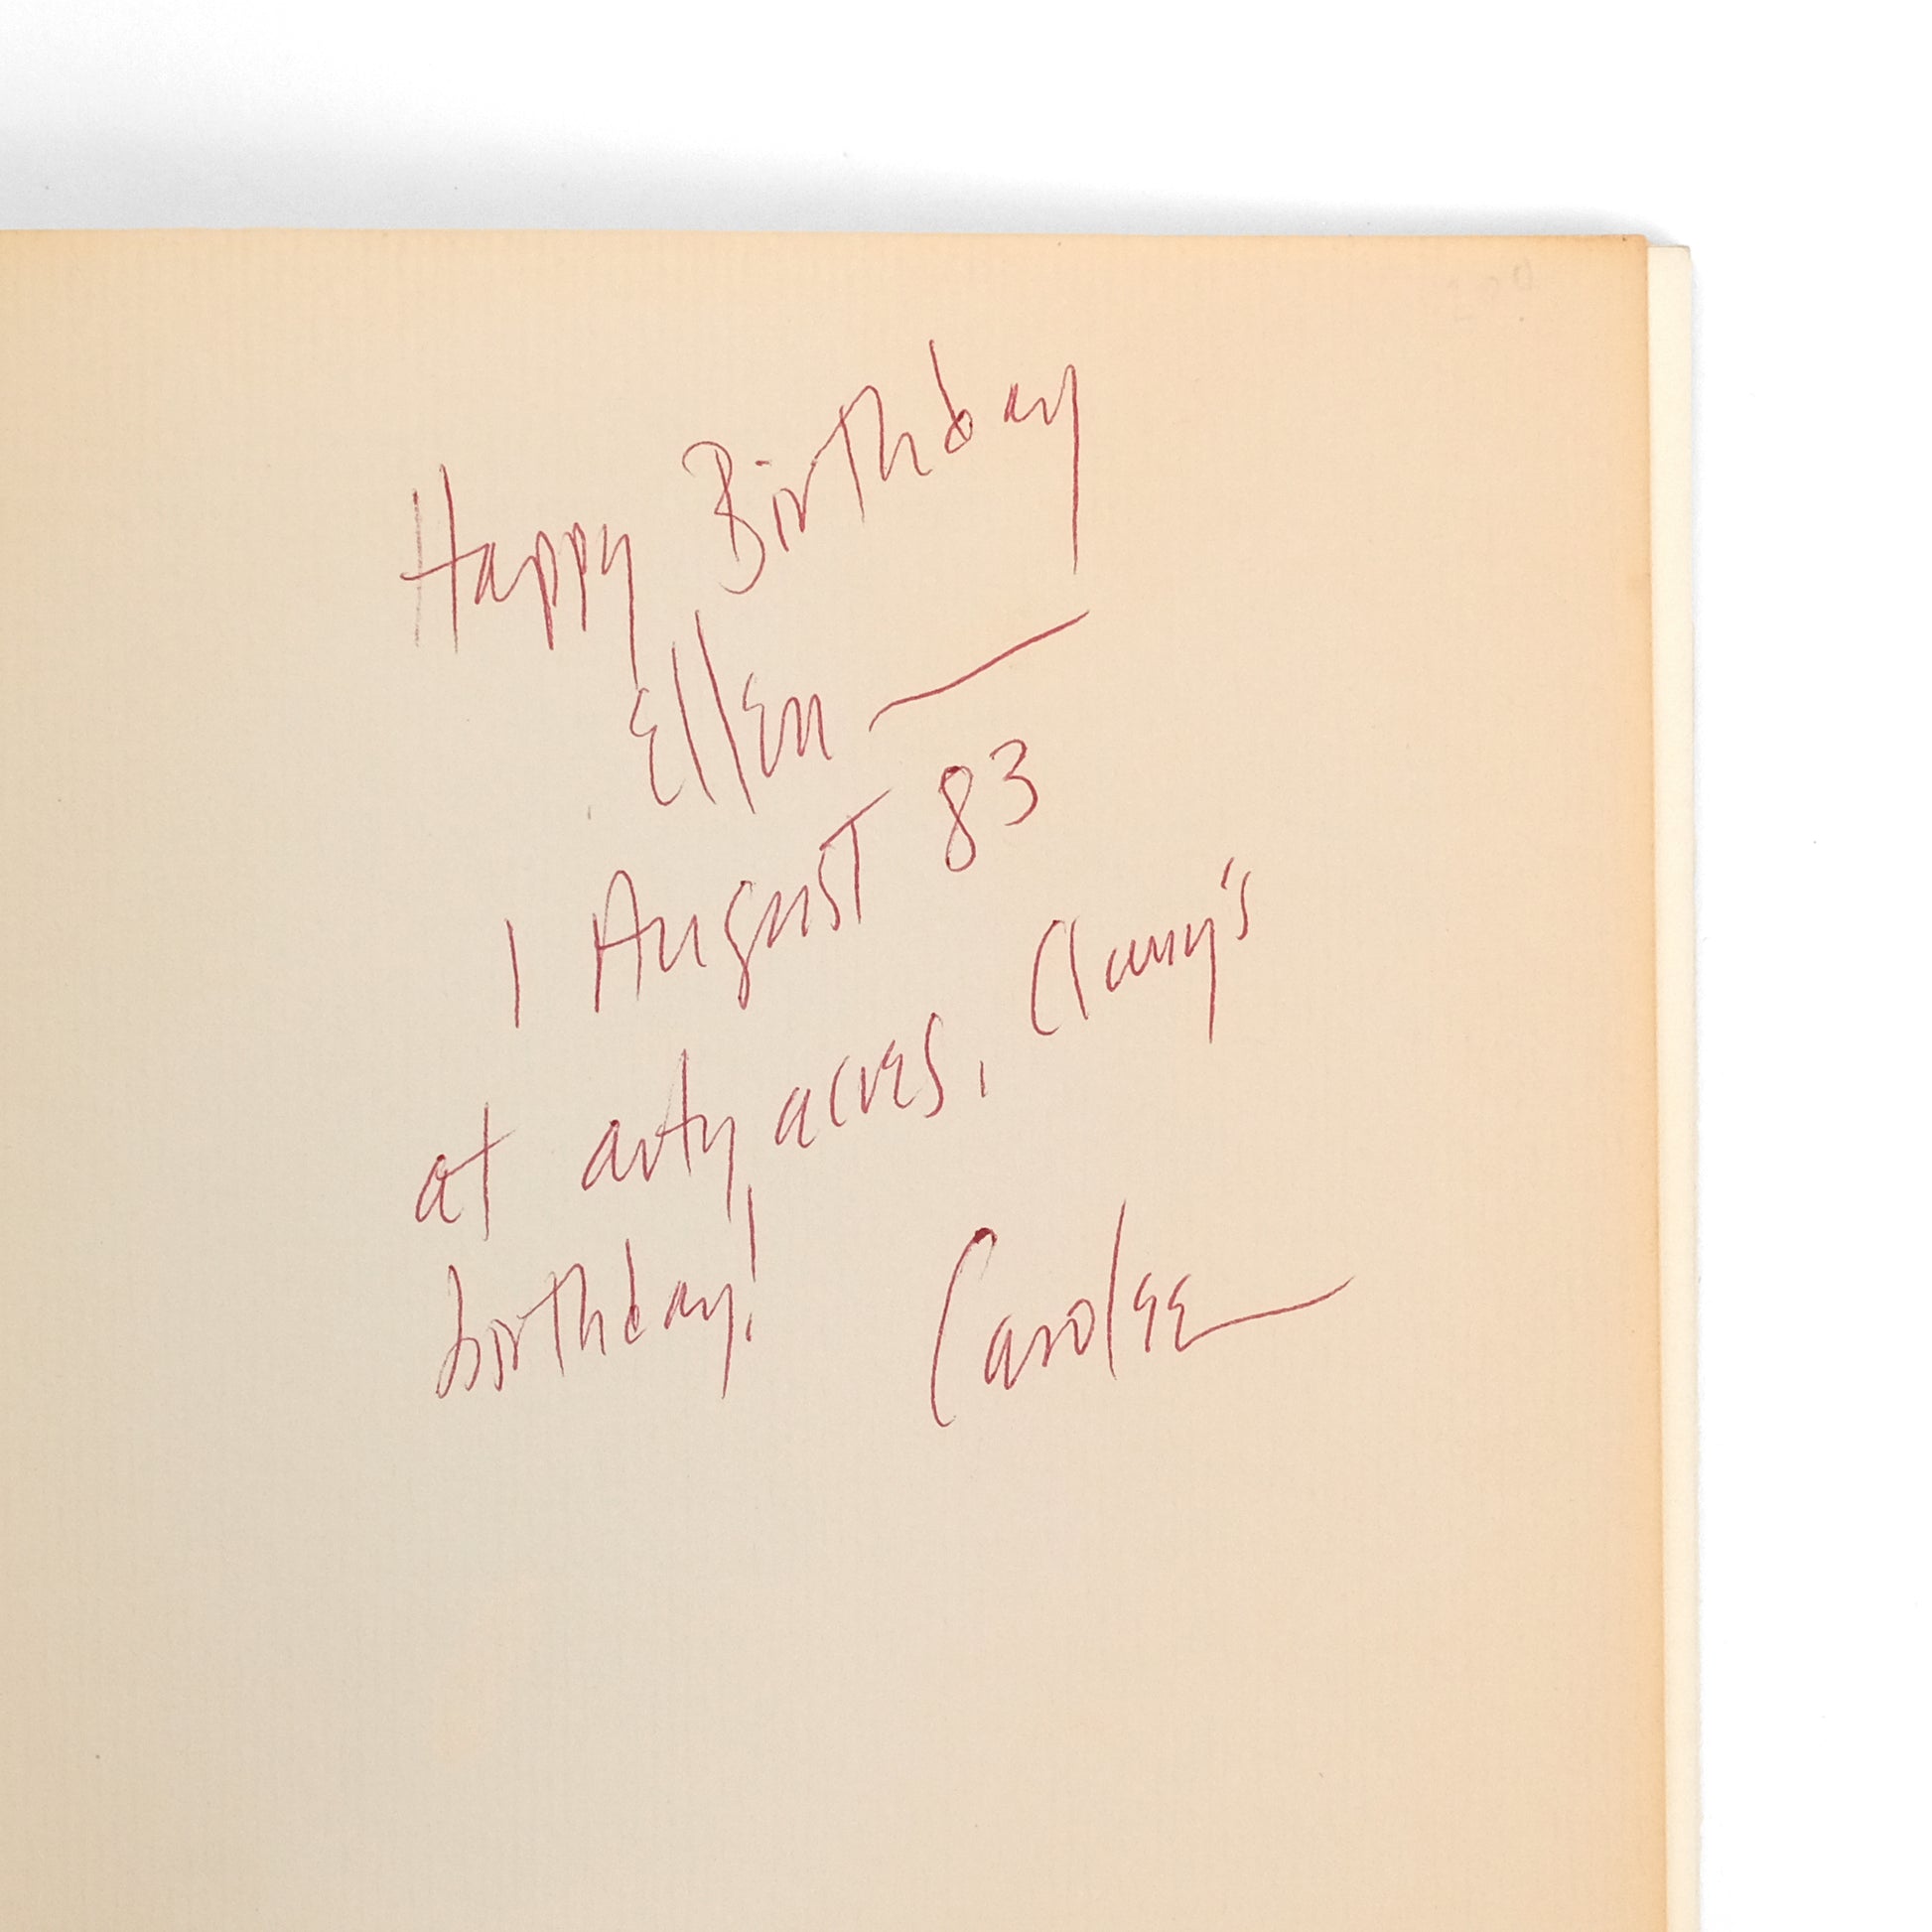 Happy Birthday
Ellen —
1 August 83
at arty acres, Clancy's
birthday!
Carolee